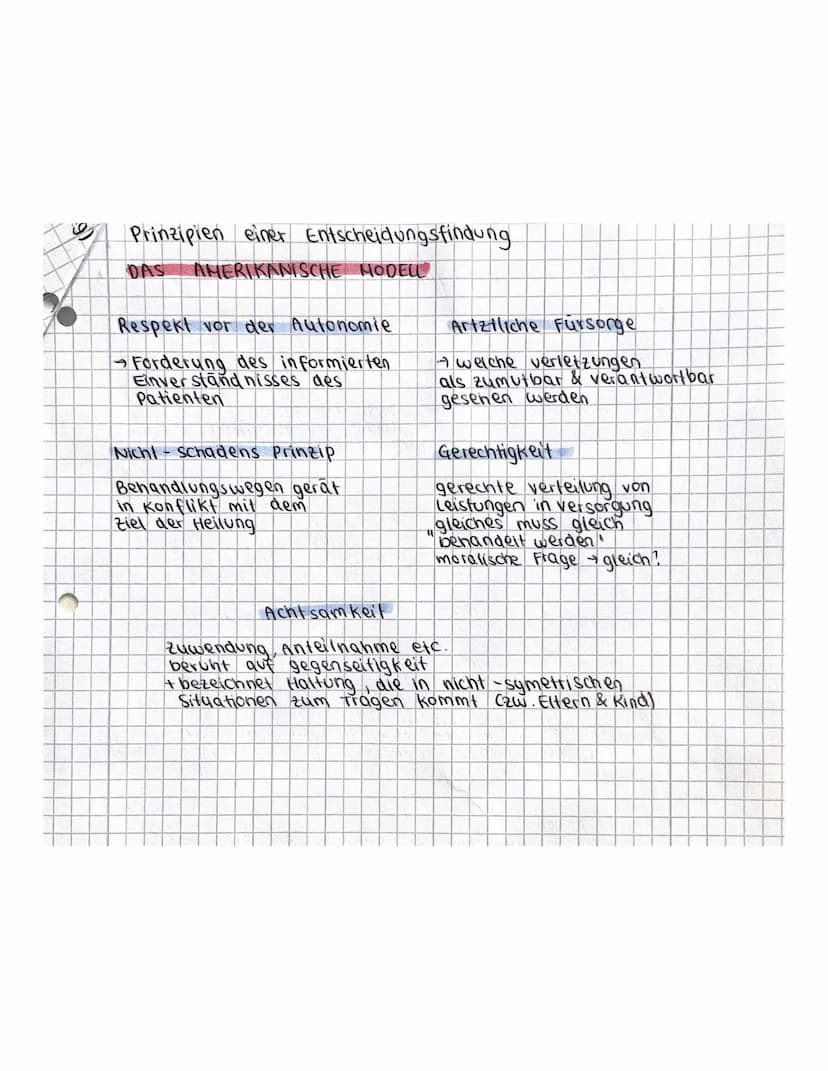 Prinzipien einer Entscheidungsfindung
DAS AMERIKANISCHE MODELL
Respekt vor der Autonomie
→ Forderung des informierten
Einverständnisses des
Patienten
Artztliche Fürsorge
→ welche verletzungen
als zumutbar & verantwortbar
gesehen werden
Nicht-schadens Prinzip
Behandlungswegen gerät
in Konflikt mit dem
Ziel der Heilung
Gerechtigkeit
gerechte verteilung von
Leistungen in versorgung
"gleiches muss gleich
behandelt werden"
moralische Frage → gleich?
Achtsamkeit
zuwendung, Anteilnahme etc.
beruht auf gegenseitigkeit
+ bezeichnet Haltung, die in nicht-symetrischen
Situationen zum Tragen kommt (zw. Eltern & Kind)